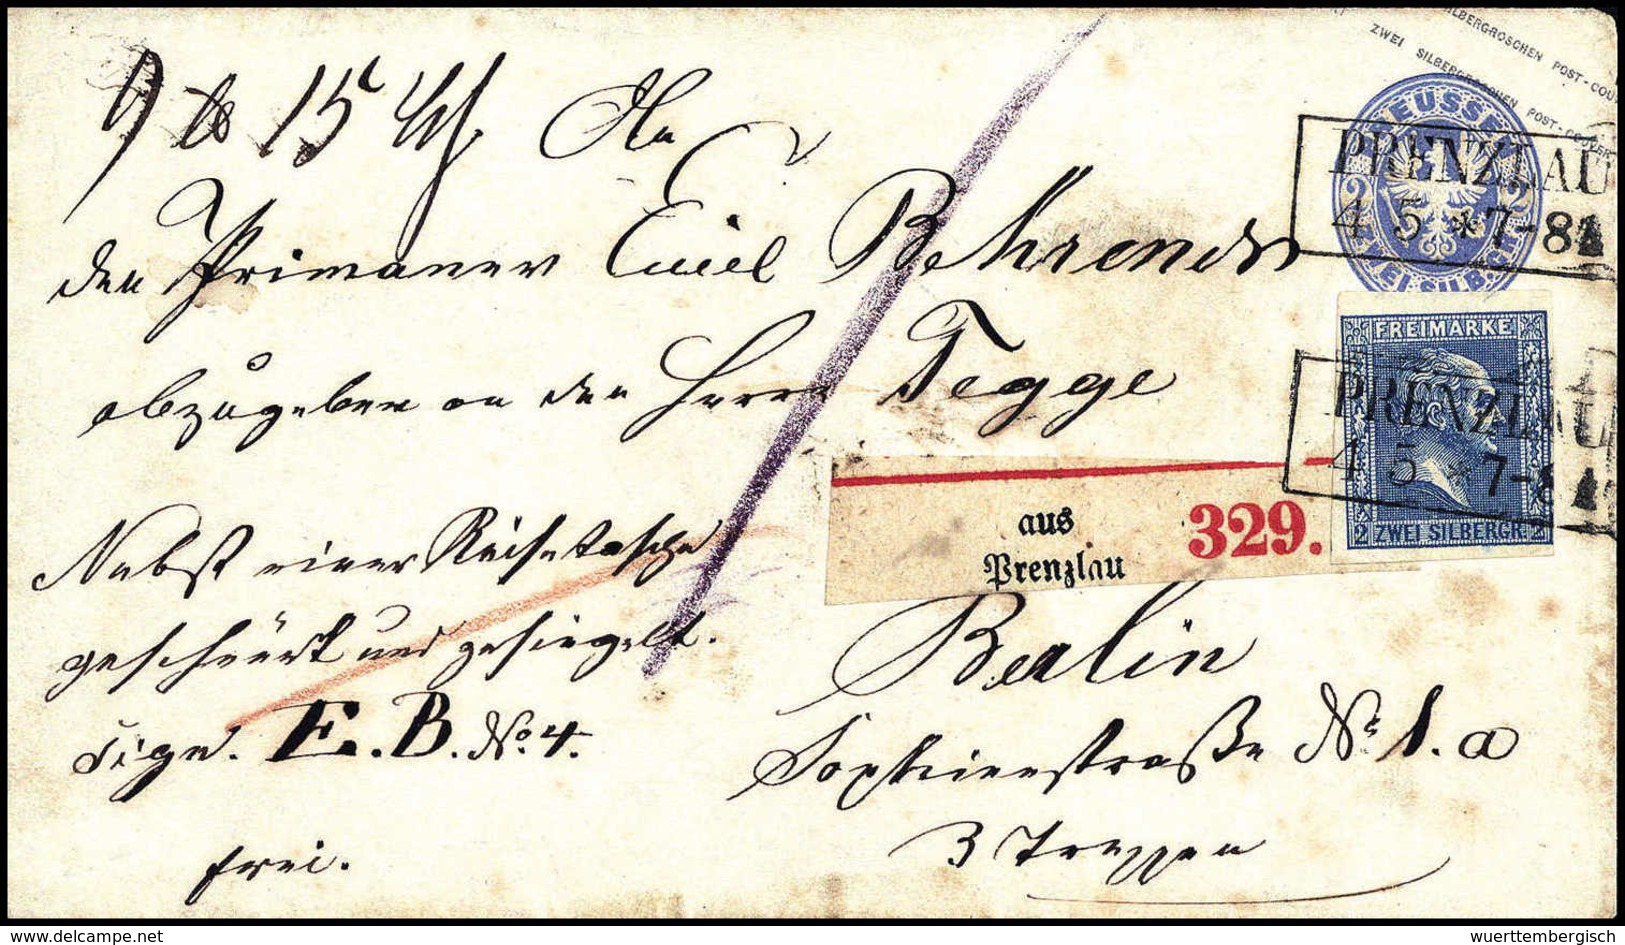 SILBERGROSCHEN POST-COUV
ZWEI SILBERGROSCHEN POST-COUVERT
PREUSSEN
2 2
ZWEI SILB. GR.
PRENZLAU
4 5 * 7-8
9 ℔ 15
An
den Primaner Emil Behrends
abzugeben an den Herrn Tegge
FREIMARKE
2 ZWEI SILBERGR. 2
PRENZLAU
4 5 * 7-8
aus
Prenzlau
329.
Nebst einer Reisetasche
geschnürt und gesiegelt.
sign. E. B. No. 4.
frei.
Berlin
Sophienstraße Nr 1. a
3 Treppen
© picture-more.com
wuerttembergisch